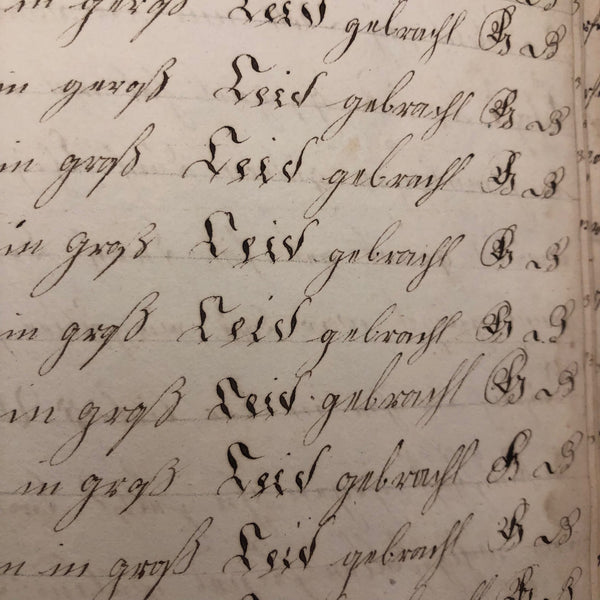 in geroß Leid gebracht
in geroß Leid gebracht
in groß Leid gebracht
in groß Leid gebracht
in groß Leid gebracht
in groß Leid gebracht
in groß Leid gebracht
in groß Leid gebracht